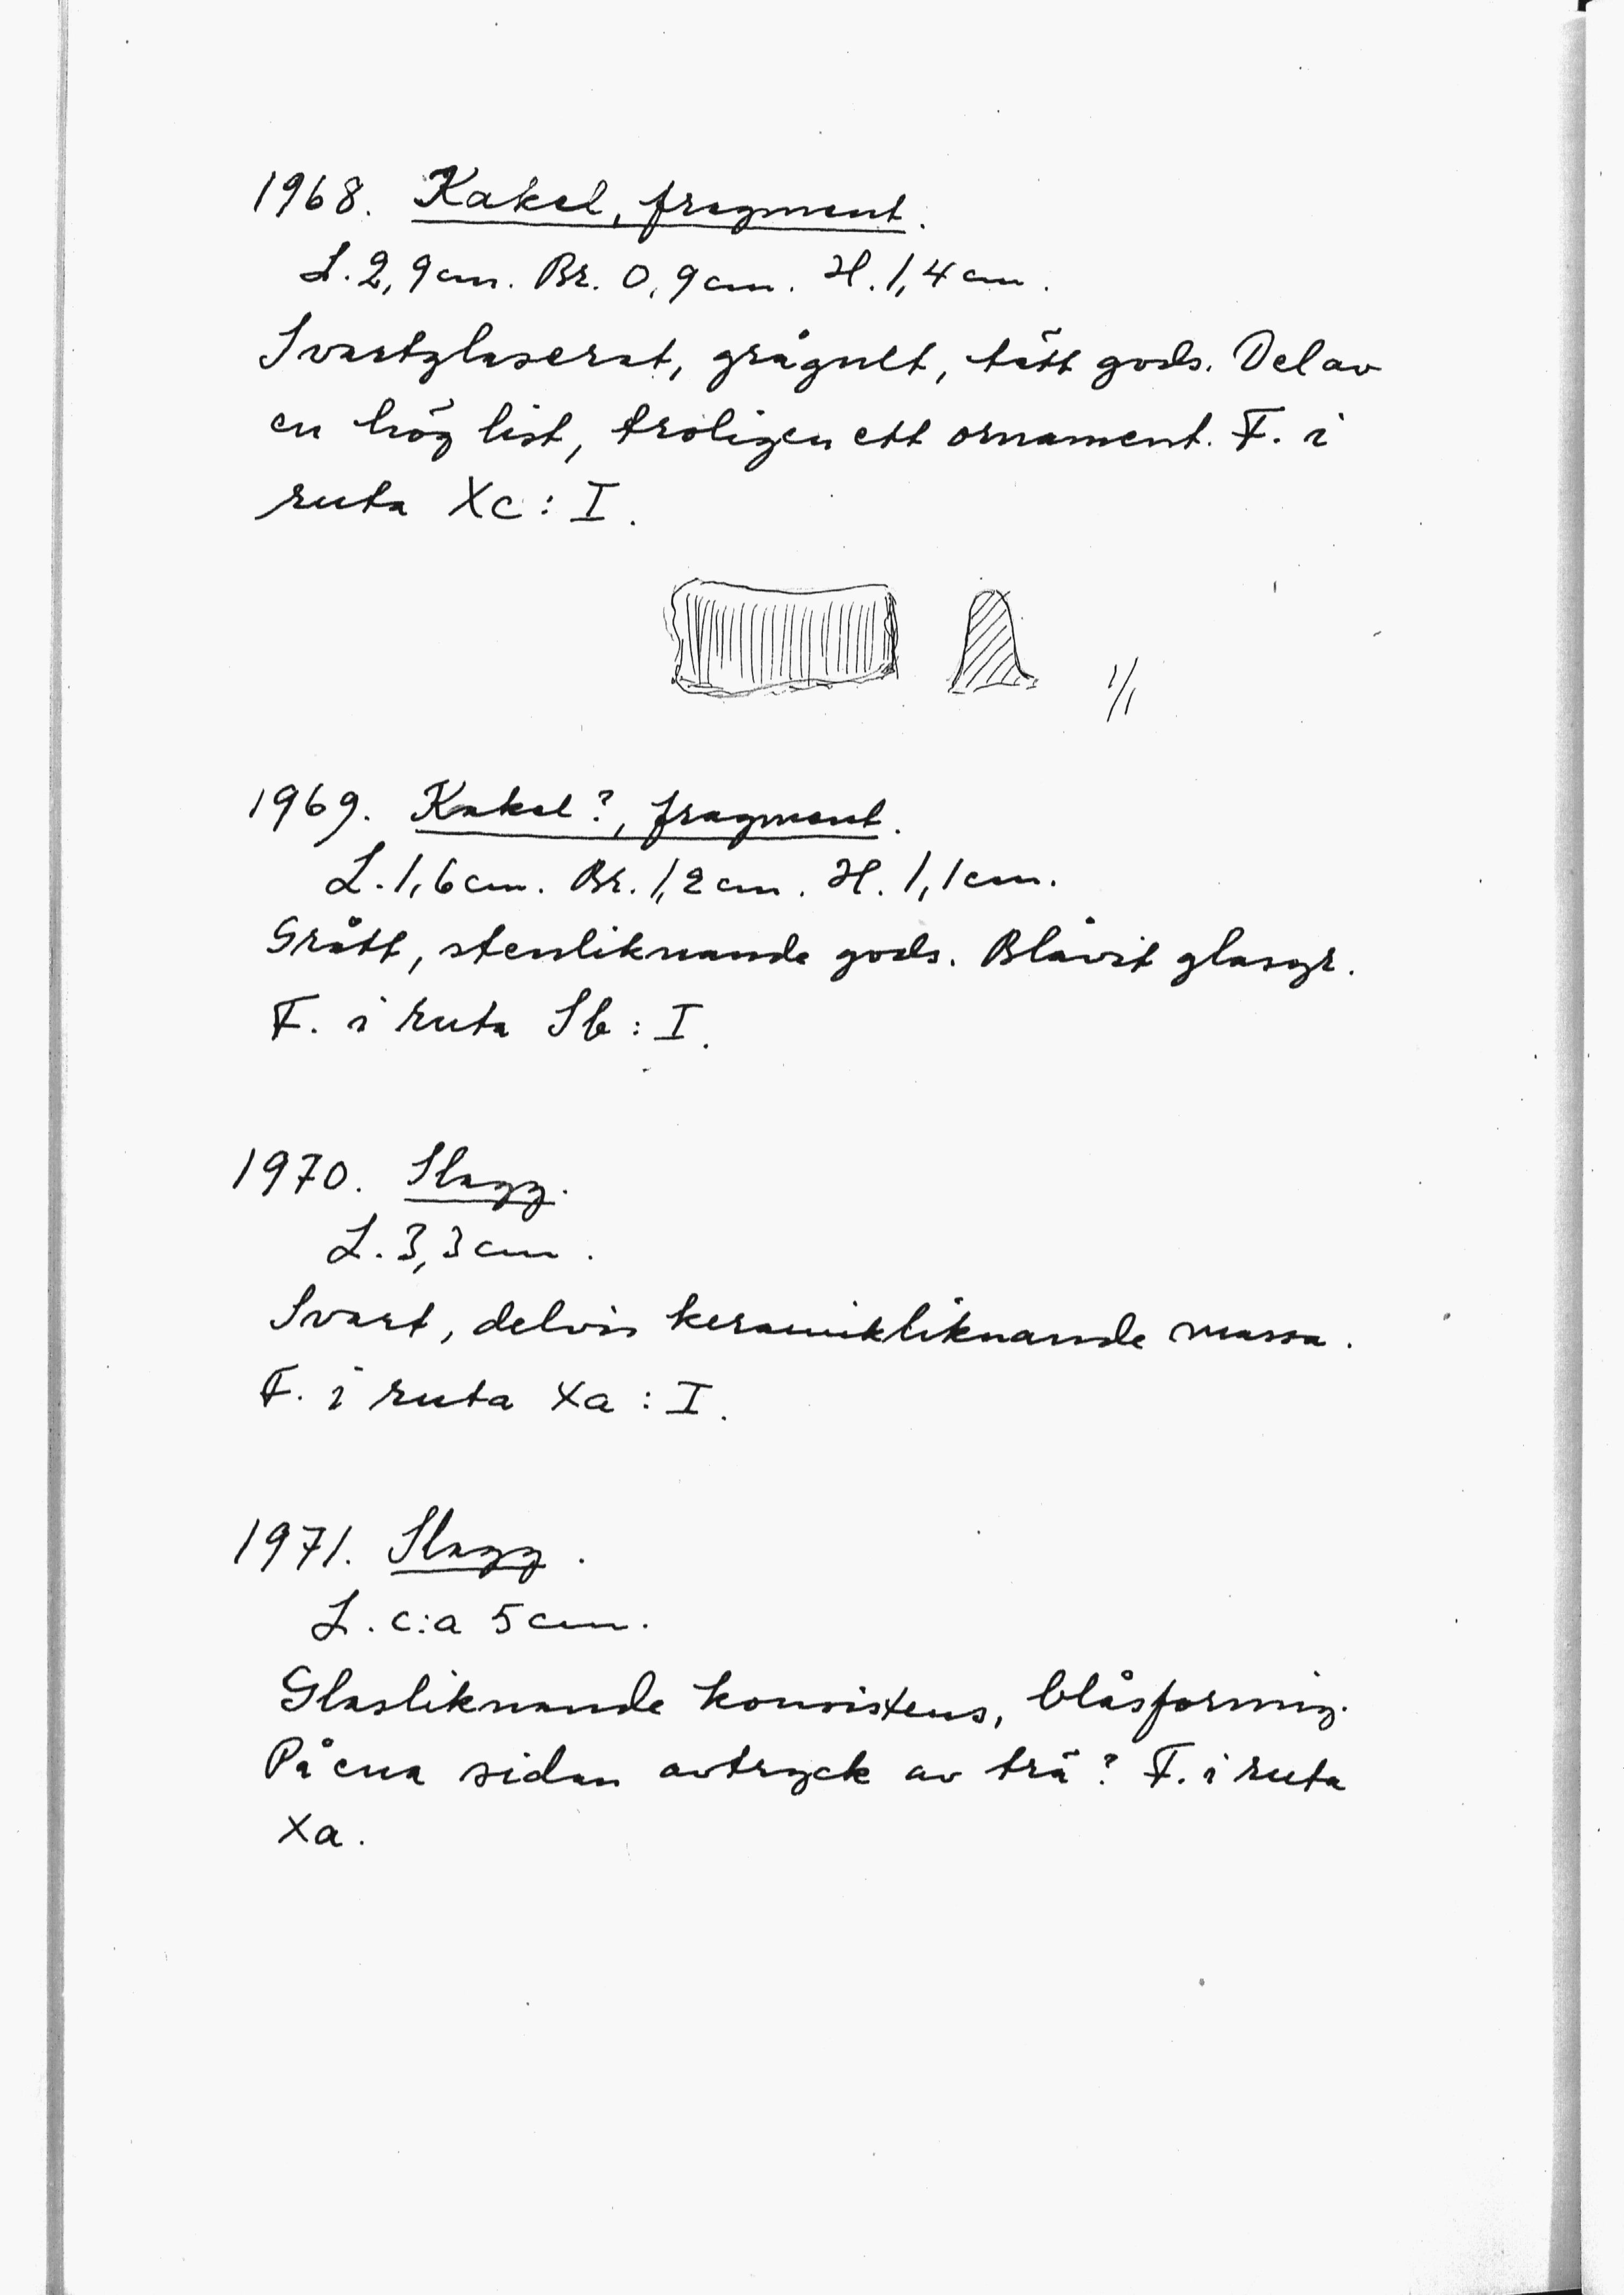 1968. Kakel, fragment.
L. 2,9 cm. Br. 0,9 cm. H. 1,4 cm.
Svartglaserat, grågult, tätt gods. Del av
en hög list, troligen ett ornament. F. i
ruta Xc : I.
1/1
1969. Kakel?, fragment.
L. 1,6 cm. Br. 1,2 cm. H. 1,1 cm.
Grått, stenliknande gods. Blåvit glasyr.
F. i ruta Sb : I.
1970. Slagg.
L. 3,3 cm.
Svart, delvis keramikliknande massa.
F. i ruta Xa : I.
1971. Slagg.
L. c:a 5 cm.
Glasliknande konsistens, blåsformig.
På ena sidan avtryck av trä? F. i ruta
Xa.